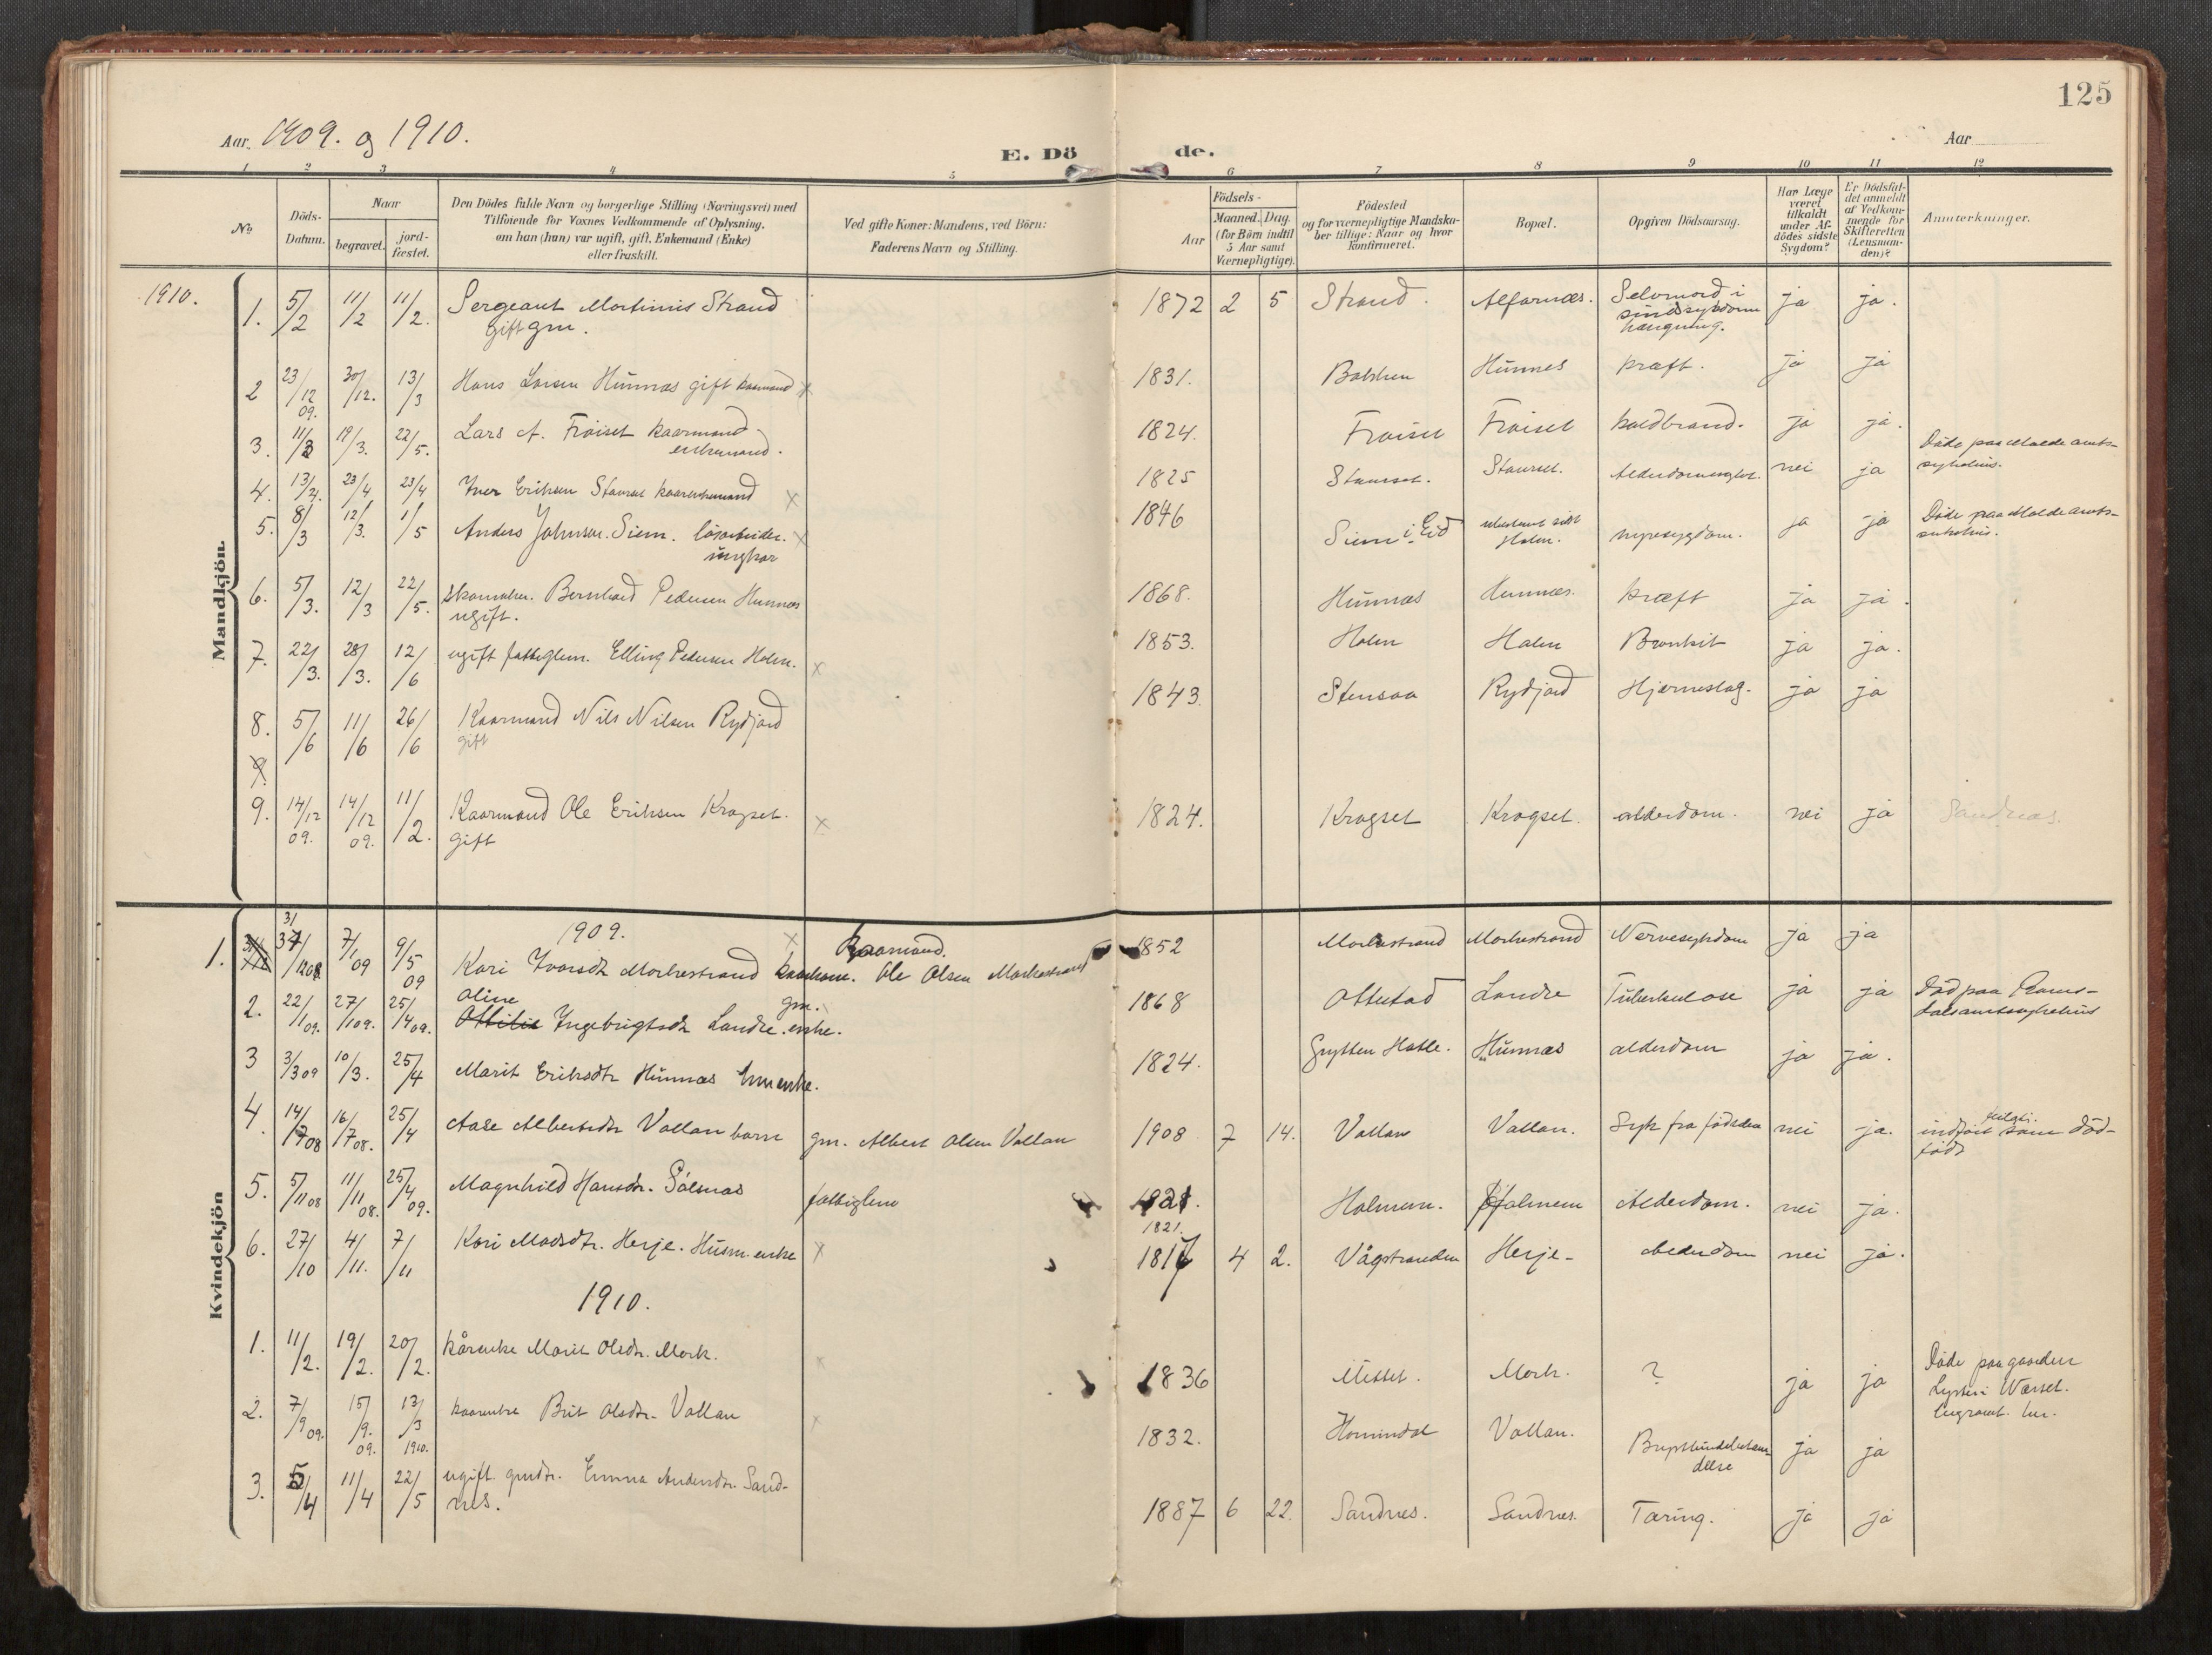 125
Aar. 1909. og 1910.
E. Dö de.
Aar
1 2 3 4 5 6 7 8 9 10 11 12
No
Döds-Datum.
Naar
begravet.
jord-fæstet.
Den Dödes fulde Navn og borgerlige Stilling (Næringsvei) med
Tilföiende for Voxnes Vedkommende af Oplysning,
om han (hun) var ugift, gift, Enkemand (Enke)
eller fraskilt.
Ved gifte Koner: Mandens, ved Börn:
Faderens Navn og Stilling.
Födsels-
Aar
Maaned. Dag.
(for Börn indtil
5 Aar samt
Værnepligtige).
Födested
og for værnepligtige Mandska-
ber tillige: Naar og hvor
konfirmeret.
Bopæl.
Opgiven Dödsaarsag.
Har Læge
været
tilkaldt
under Af-
dödes sidste
Sygdom?
Er Dödsfal-
det anmeldt
af Vedkom-
mende for
Skifteretten
(Lensman-
den)?
Anmærkninger.
Mandkjön.
1910.
1. 5/2 11/2 11/2. Sergeant Martinus Strand 1872 2 5 Strand. Alfarnæs. Selvmord i ja ja.
gift gm. sindssygdom
hængning.
2 23/12 09. 30/12. 13/3 Hans Larsen Hünnæs gift kaarmand x 1831. Hünnes kræft. ja ja
3. 11/3 19/3. 22/5. Lars A. Fröiset kaarmand 1824. Fröiset Fröiset koldbrand. ja ja.
enkemand.
4. 13/4. 23/4 23/4 Iver Eriksen Staurset x 1825 Staurset. Staurset. nei ja Döde paa Molde amts-
sykehus.
5. 8/3 12/3. 1/5 Anders Johnsen Siem. lösarbeider. x 1846 Siem i Eid Holm. nyresygdom. ja ja Döde paa Molde amts-
ungkar sykehus.
6. 5/3. 12/3 22/5. skomaker. Bernhard Pedersen Hunnæs 1868. Hünnæs Hunnæs. kræft ja ja.
ugift.
7. 22/3. 28/3. 12/6 ugift fattiglem. Elling Pedersen Holm. x 1853. Holm Holm Bronkit ja ja.
8. 5/6 11/6 26/6 Kaarmand Nils Nilsen Rydjord 1843. Stensaa Rydjord Hjerneslag. ja ja
gift
9.
9. 14/12 09. 14/12 09. 11/2. Kaarmand Ole Eriksen Krogset. x 1824. Krogset Krogset. alderdom. nei ja Sandnæs.
gift
Kvindekjön
1909.
1. 31/12 08 7/1 09 9/5 09 Kari Ivarsdtr Morkestrand x Kaarmand. Ole Olsen Morkestrand 1852 Morkestrand Morkestrand Nervesykdom ja ja
2. 22/1 09. 27/1 09. 25/4 09. Oline gm.
Ottilie Ingebrigtsdtr Landre. enke. 1868 Ottestad Landre Tüberkulose ja ja Död paa Roms-
dals amtssykehus
3 3/3 09 10/3. 25/4 Marit Eriksdtr Hünnæs enke. 1824. Grytten Hatle. Hünnæs alderdom ja ja.
4. 14/7 08 16/7 08. 25/4 Aase Albertsdtr Vollan barn gm. Albert Olsen Vollan 1908 7 14. Vollan Vollan. Syk fra födselen nei ja. indfört som död-
född
5. 5/11 08 11/11 08. 25/4 09. Magnhild Hansdtr. Sölsnæs fattiglem 1821. Holmem. Holmem Alderdom. nei ja.
1821.
6. 27/10 4/11. 7/11 Kari Madsdtr. Herje. Hüsm. enke x 1817 4 2. Vågstranden Herje- Alderdom nei ja.
1910.
1. 11/2. 19/2. 20/2. kårenke Marit Olsdtr. Mork. x 1836 Misset. Mork. ? ja ja Döde paa gaarden
2. 7/9 09. 15/9. 09. 13/3 1910. kaarenke Brit Olsdtr. Vollan x 1832. Hornindal Vollan. ja ja
3. 5/4 11/4 22/5 ugift gmdtr. Emma Andersdtr. Sand-
nes. 1887 6 22. Sandnes. Sandnes. Tæring. ja ja